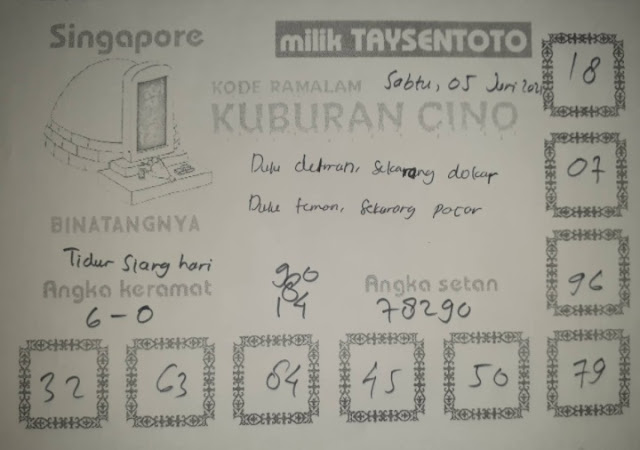 Singapore
milik TAYSENTOTO
KODE RAMALAM
Sabtu, 05 Juni
KUBURAN CINO
Dulu sekarang dokar
Dulu teman, sekarang pacar
BINATANGNYA
Tidur siang hari
Angka keramat
6-0
90
8
14
Angka setan
78290
18
07
96
32 63 64 45 50 79